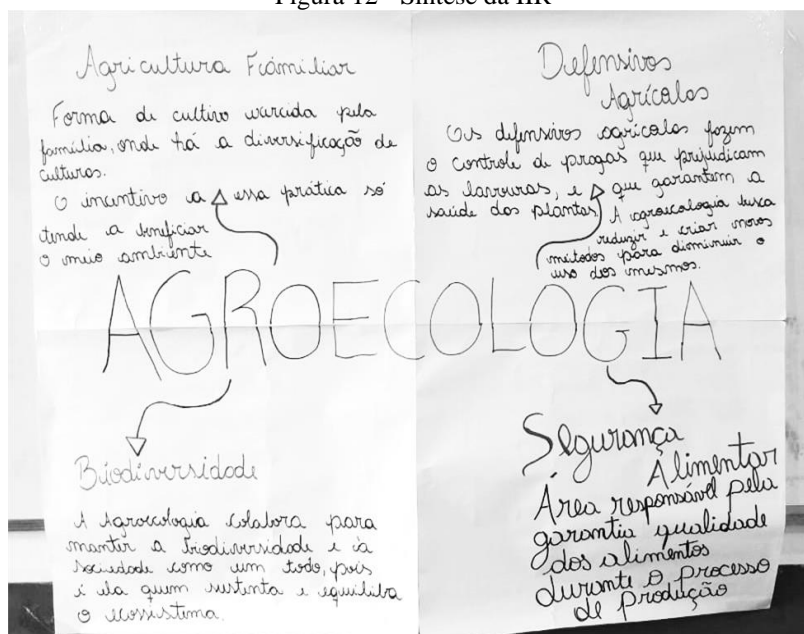 Figura 12 - Síntese da IIR
Agricultura Familiar
Forma de cultivo exercida pela
família, onde há a diversificação de
culturas.
O incentivo a essa prática só
tende a beneficiar
o meio ambiente
Defensivos
Agrícolas
Os defensivos agrícolas fazem
o controle de pragas que prejudicam
as lavouras, e que garantem a
saúde das plantas
A agroecologia busca
reduzir e criar novos
métodos para diminuir o
uso dos mesmos.
AGROECOLOGIA
Biodiversidade
A Agroecologia colabora para
manter a biodiversidade e a
sociedade como um todo, pois
é ela quem sustenta e equiliba
o ecossistema.
Segurança
Alimentar
Área responsável pela
garantia qualidade
dos alimentos
durante o processo
de produção